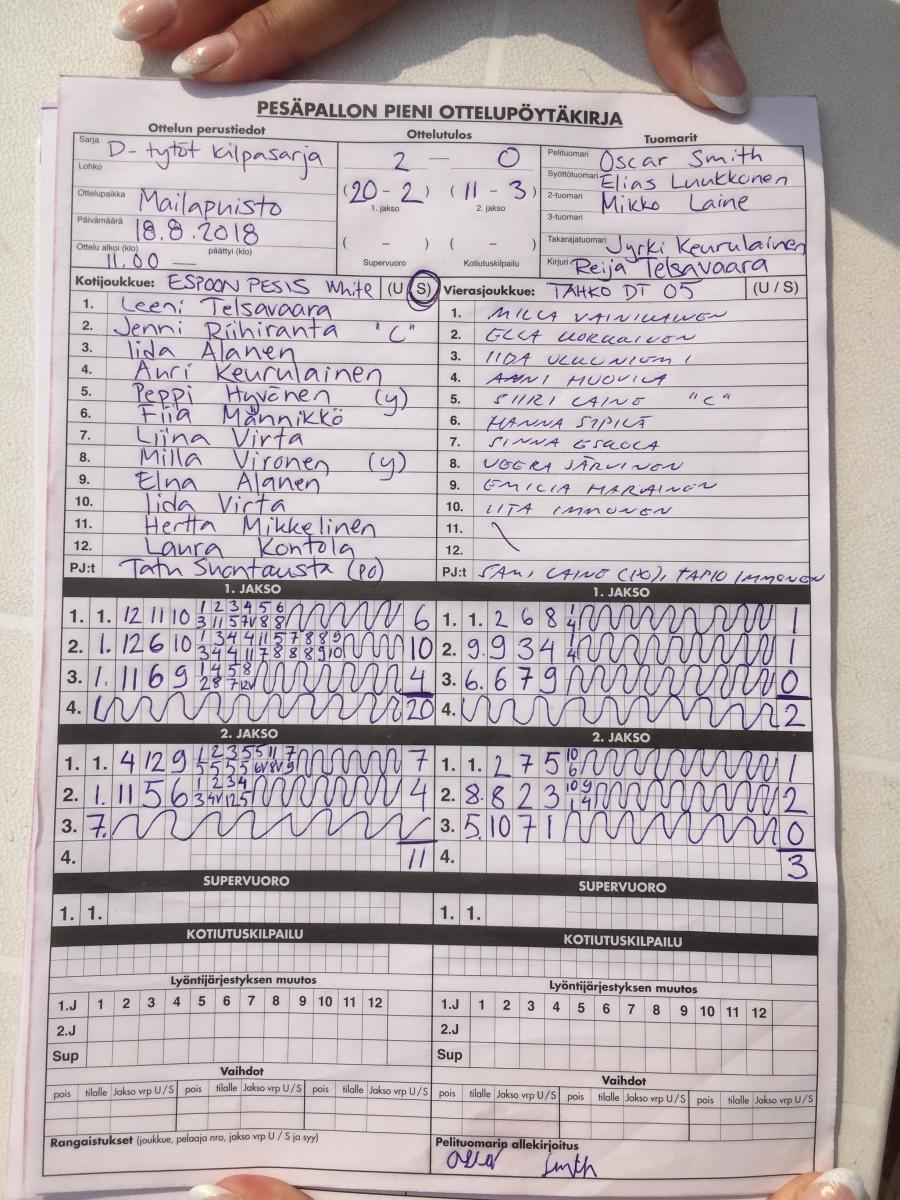 PESÄPALLON PIENI OTTELUPÖYTÄKIRJA
Ottelun perustiedot
Sarja D-tytöt kilpasarja
Lohko
Ottelupaikka Mailapuisto
Päivämäärä 18.8.2018
Ottelu alkoi (klo) 11.00 — päättyi (klo)
Ottelutulos
2 — 0
(20 - 2) (11 - 3)
1. jakso 2. jakso
( - ) ( - )
Supervuoro Kotiutuskilpailu
Tuomarit
Pelituomari Oscar Smith
Syöttötuomari Elias Luukkonen
2-tuomari Mikko Laine
3-tuomari
Takarajatuomari Jyrki Keurulainen
Kirjuri Reija Telsavaara
Kotijoukkue: ESPOON PESIS White (U S)
1. Leeni Telsavaara
2. Jenni Riihiranta "C"
3. Iida Alanen
4. Anri Keurulainen
5. Peppi Hyvönen (y)
6. Fiia Männikkö
7. Liina Virta
8. Milla Vironen (y)
9. Elna Alanen
10. Iida Virta
11. Hertta Mikkelinen
12. Laura Kontola
PJ:t Tatu Suontausta (PO)
Vierasjoukkue: TAHKO DT 05 (U / S)
1. MILLA VAINIKAINEN
2. ELLA
3. IIDA
4. ANNI HUOVILA
5. SIIRI LAINE "C"
6. HANNA SIPILÄ
7. SINNA ESKOLA
8. VEERA JÄRVINEN
9. EMILIA
10. IITA IMMONEN
11.
12.
PJ:t SAMI LAINE (PO), TAPIO IMMONEN
1. JAKSO
1. 1. 12 11 10 1 2 3 4 5 6 6
3 11 5 7V 8 8
2. 1. 12 6 10 1 3 4 4 11 5 7 8 8 9 10
3 4 4 11 7 8 8 8 9 10
3. 1. 11 6 9 1 4 5 8 4
2 8 7 12V
4. 20
1. JAKSO
1. 1. 2 6 8 1 1
4
2. 9. 9 3 4 1 1
4
3. 6. 6 7 9 0
4. 2
2. JAKSO
1. 1. 4 12 9 1 2 3 5 5 11 7 7
5 5 5 5 6V 8V 9
2. 1. 11 5 6 1 2 3 4 4
3 4V 12 5
3. 7.
4. 11
2. JAKSO
1. 1. 2 7 5 10 1
6
2. 8. 8 2 3 10 9 2
1 4
3. 5. 10 7 1 0
4. 3
SUPERVUORO
1. 1.
SUPERVUORO
1. 1.
KOTIUTUSKILPAILU
KOTIUTUSKILPAILU
Lyöntijärjestyksen muutos
1.J 1 2 3 4 5 6 7 8 9 10 11 12
2.J
Sup
Lyöntijärjestyksen muutos
1.J 1 2 3 4 5 6 7 8 9 10 11 12
2.J
Sup
Vaihdot
pois tilalle Jakso vrp U / S pois tilalle Jakso vrp U / S pois tilalle Jakso vrp U / S
Vaihdot
pois tilalle Jakso vrp U / S pois tilalle Jakso vrp U / S pois tilalle Jakso vrp U / S
Rangaistukset (joukkue, pelaaja nro, jakso vrp U / S ja syy)
Pelituomarin allekirjoitus
Oscar Smith